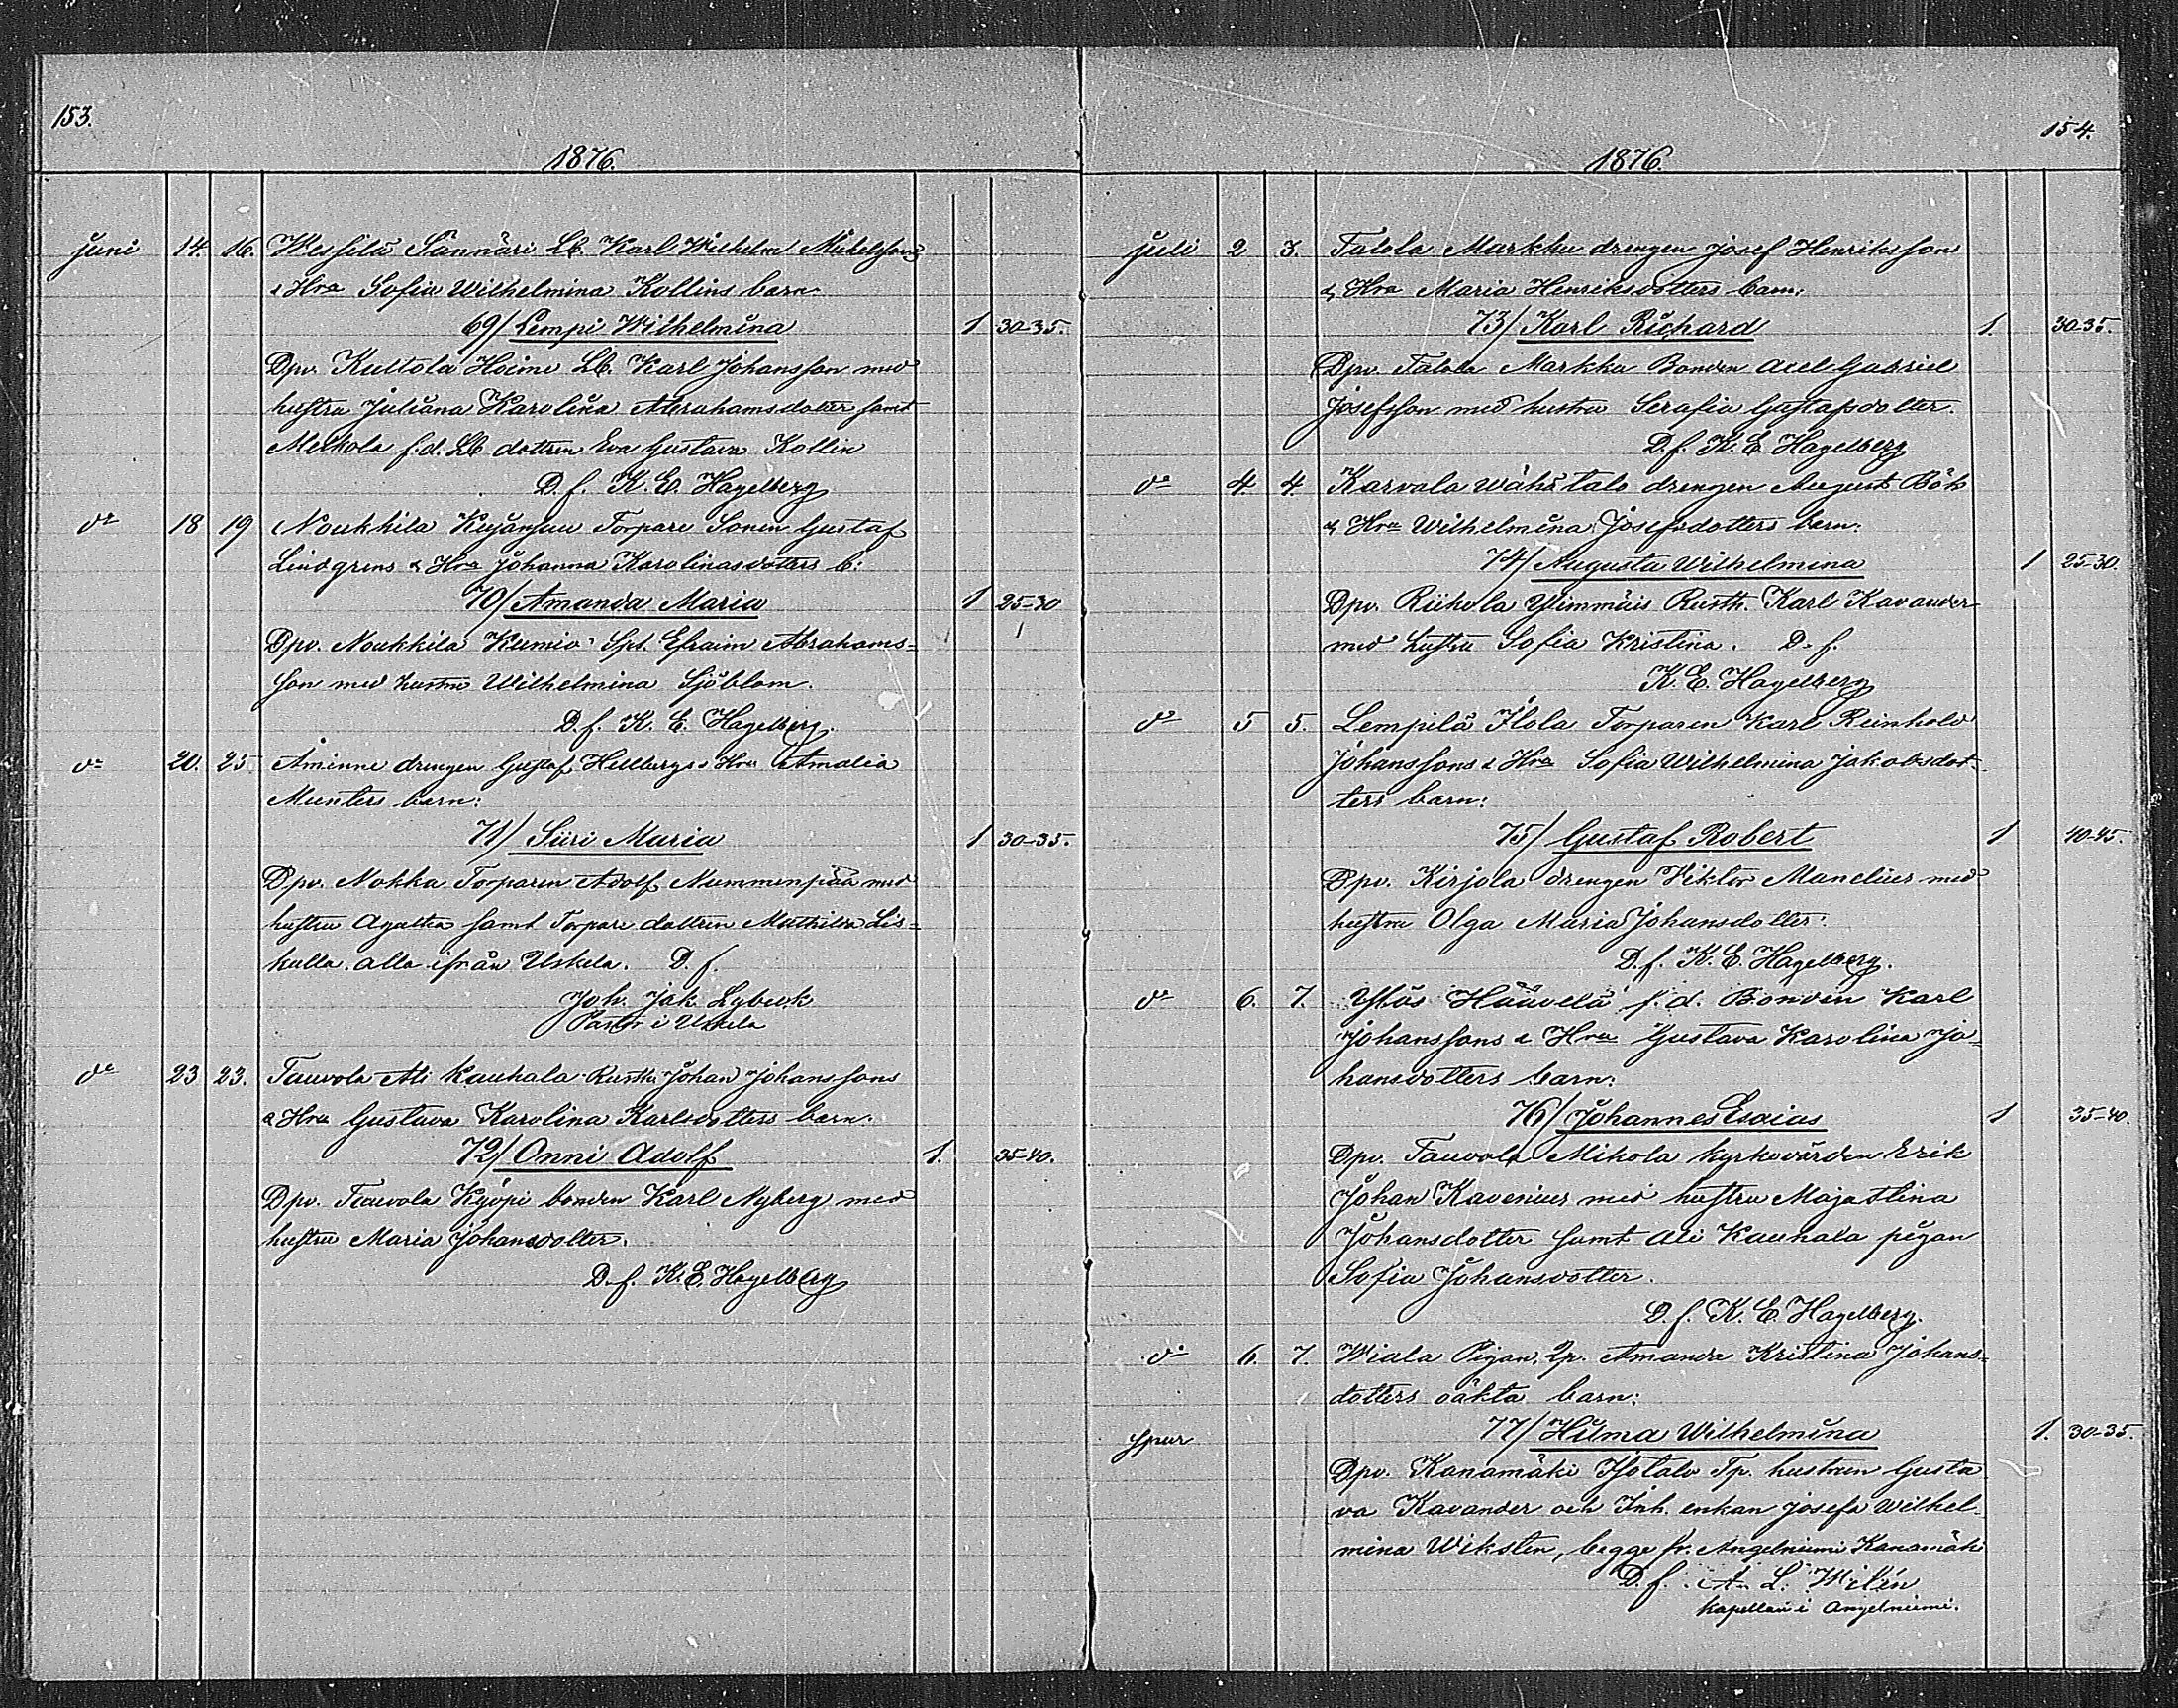 153.
1876.
juni 14. 16. Wessilä Sännäri Lb. Karl Wilhelm Mickelssons
& Hra Sofia Wilhelmina Kollins barn:
69/ Lempi Wilhelmina 1 30-35.
Dpv. Kuttola Heimo Lb. Karl Johansson med
hustru Juliana Karolina Abrahamsdotter samt
Meckola f.d. Lb dottren Eva Gustava Kollin
D. f. K. E. Hagelberg
do 18 19 Noukkila Kujanpuu Torpare Sonen Gustaf
Lindgrens & Hra Johanna Karolinasdotters b:
70/ Amanda Maria 1 25-30
Dpv. Noukkila Kumio Spt. Efraim Abrahams-
son med hustru Wilhelmina Sjöblom.
D. f. K. E. Hagelberg.
do 20. 25. Åminne drengen Gustaf Hellbergs & Hra Amalia
Munters barn:
71/ Siiri Maria 1 30-35.
Dpv. Nokka Torparen Adolf Nummenpää med
hustru Agatha samt Torpare dottren Mathilda Lis-
kulla. alla ifrån Uskela. D. f.
Joh. Jak. Lybeck
Pastor i Uskela
do 23 23. Tauvola Ali Kauhala Rusth. Johan Johanssons
& Hra Gustava Karolina Karlsdotters barn:
72/ Onni Adolf 1. 35-40.
Dpv. Tauvola Kyöpi bonden Karl Nyberg med
hustru Maria Johansdotter.
D. f. K. E. Hagelberg
154.
1876.
juli 2 3. Tatola Markku drengen Josef Henrikssons
& Hra Maria Henriksdotters barn:
73/ Karl Richard 1. 30-35.
Dpv. Tatola Markku Bonden Axel Gabriel
Josefsson med hustru Serafia Gustafsdotter.
D. f. K. E. Hagelberg
do 4. 4. Karvala Wähätalo drengen August Böks
& Hra Wilhelmina Josefsdotters barn:
74/ Augusta Wilhelmina 1 25-30.
Dpv. Riihola Ylimmäis Rusth. Karl Kavander
med hustru Sofia Kristina. D. f.
K. E. Hagelberg
do 5 5. Lempilä Ilola Torparen Karl Reinhold
Johanssons & Hra Sofia Wilhelmina Jakobsdot-
ters barn:
75/ Gustaf Robert 1 40-45.
Dpv. Kirjola drengen Viktor Manelius med
hustru Olga Maria Johansdotter:
D. f. K. E. Hagelberg.
do 6. 7. Ylös Häävelä f. d. Bonden Karl
Johanssons & Hra Gustava Karolina Jo-
hansdotters barn:
76/ Johannes Esaias 1 35-40.
Dpv. Tauvola Mikola kyrkovärden Erik
Johan Kavenius med hustru Maja Stina
Johansdotter samt Ali Kauhala pigan
Sofia Johansdotter.
D. f. K. E. Hagelberg.
do 6. 7. Wiala Pigan, Qp. Amanda Kristina Johans-
dotters oäkta barn:
spur 77/ Hilma Wilhelmina 1. 30-35.
Dpv. Kanamäki Isotalo Tp. hustrun Gusta
va Kavander och Inh. enkan Josefa Wilhel-
mina Wiksten, begge fr. Angelniemi Kanamäki
D. f. A. L. Wilén
Kapellan i Angelniemi.